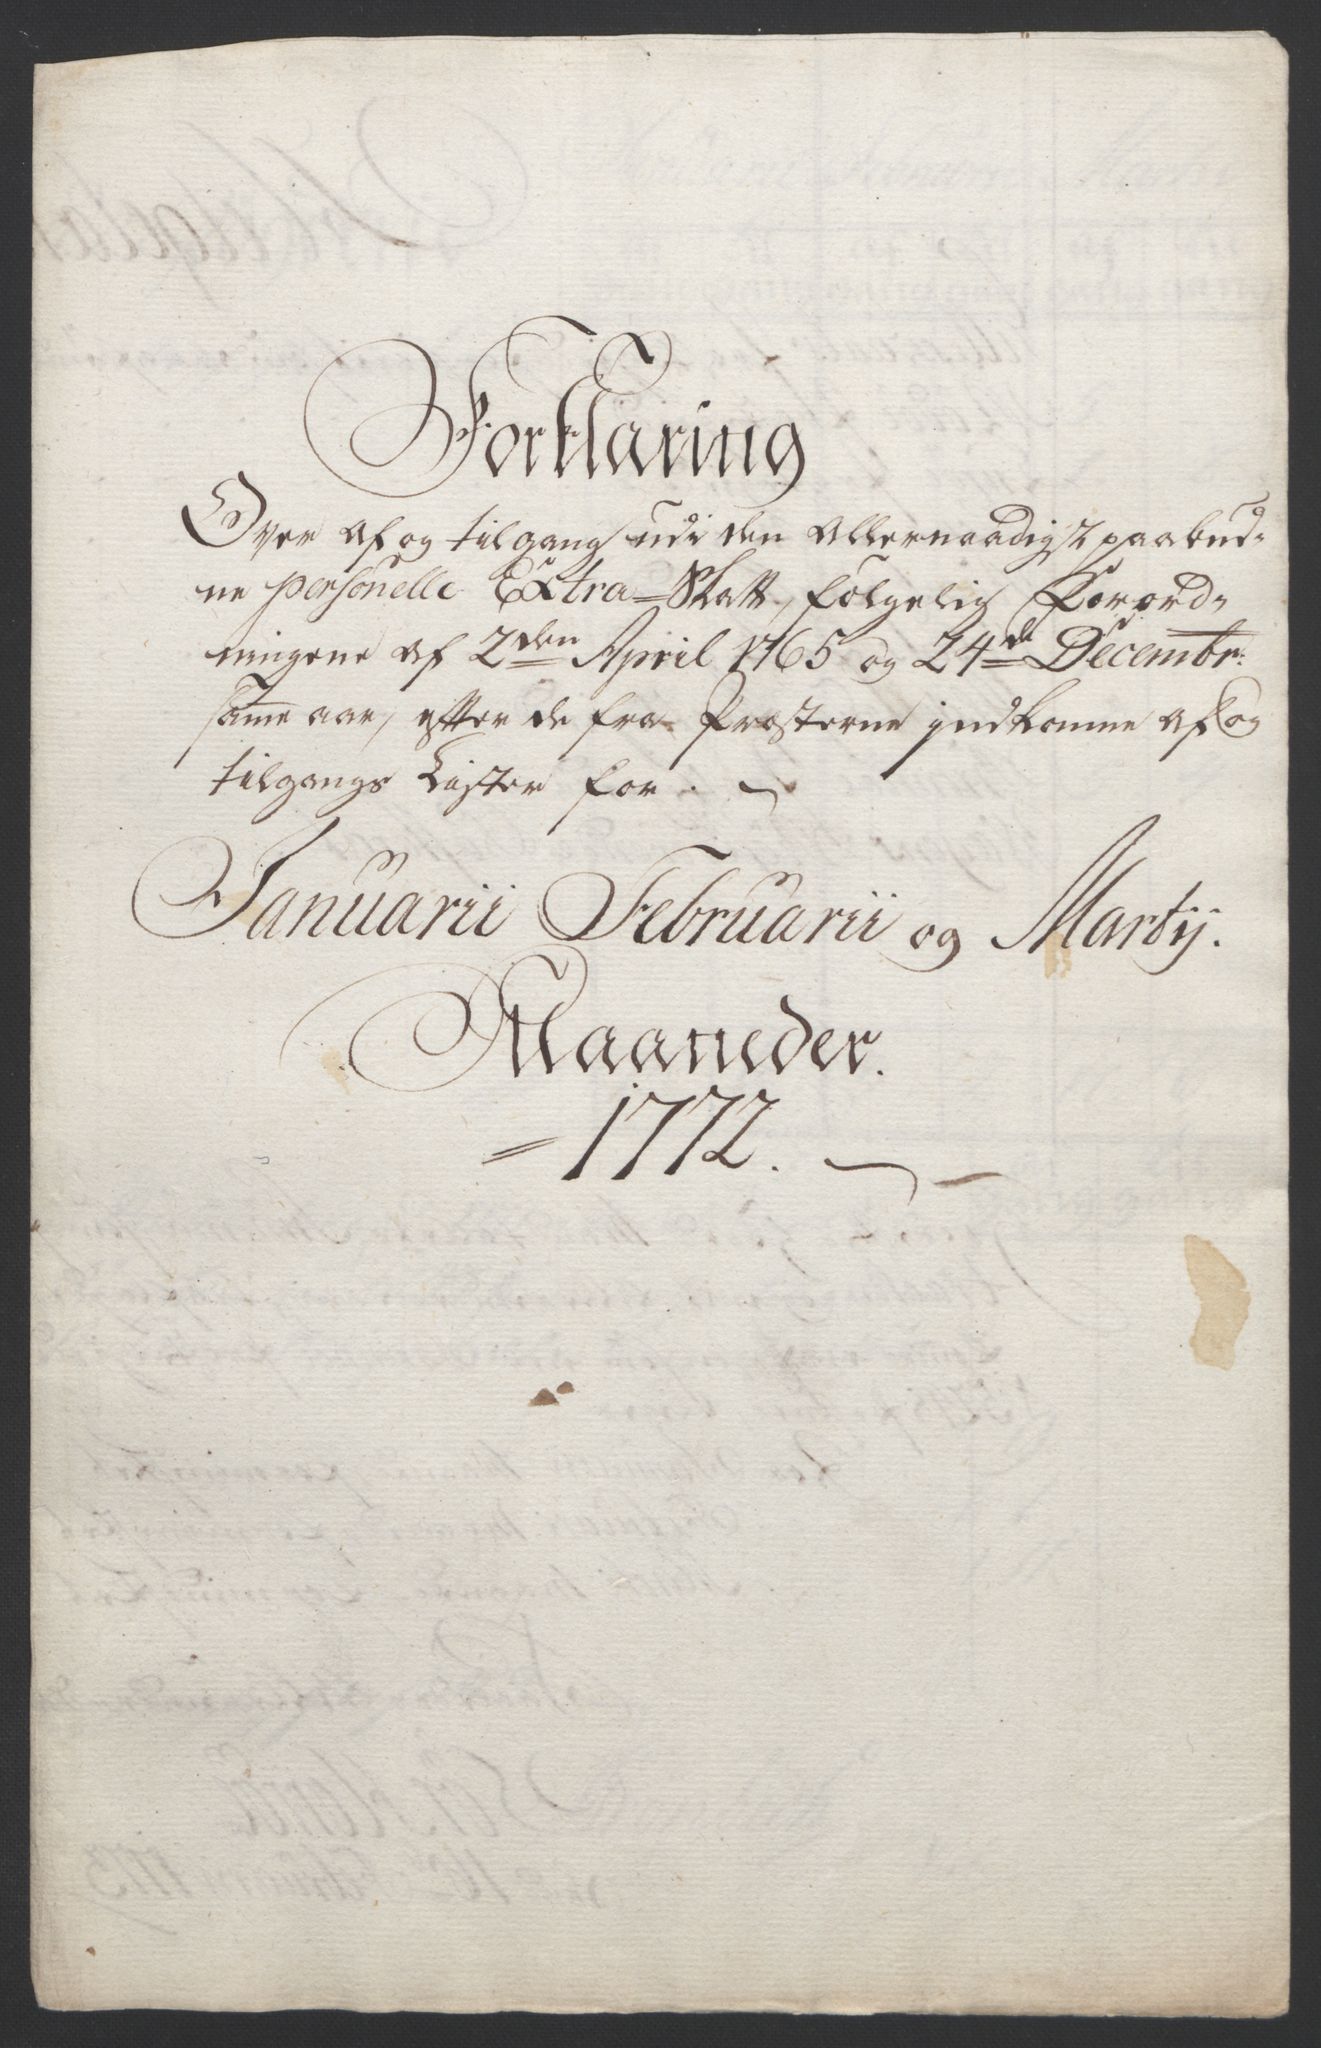 Forklaring
Over af og tilgang udi den allernaadigst paabud-
ne personelle Extra-Skatt, følgelig Forord-
ningene af 2den April 1765 og 24de Decembr:
same aar, efter de fra Præsterne indkomne af og
tilgangs Lister for.
Januarii Februarii og Martij.
Maaneder.
1772.